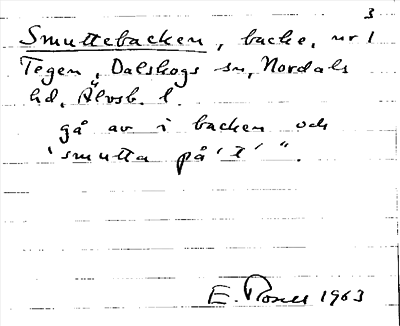 3
Smuttebacken, backe, nr 1
Tegen, Dalskogs sn, Nordals
hd, Älvsb. l.
gå av i backen och
'smutta på't'".
E. 1963